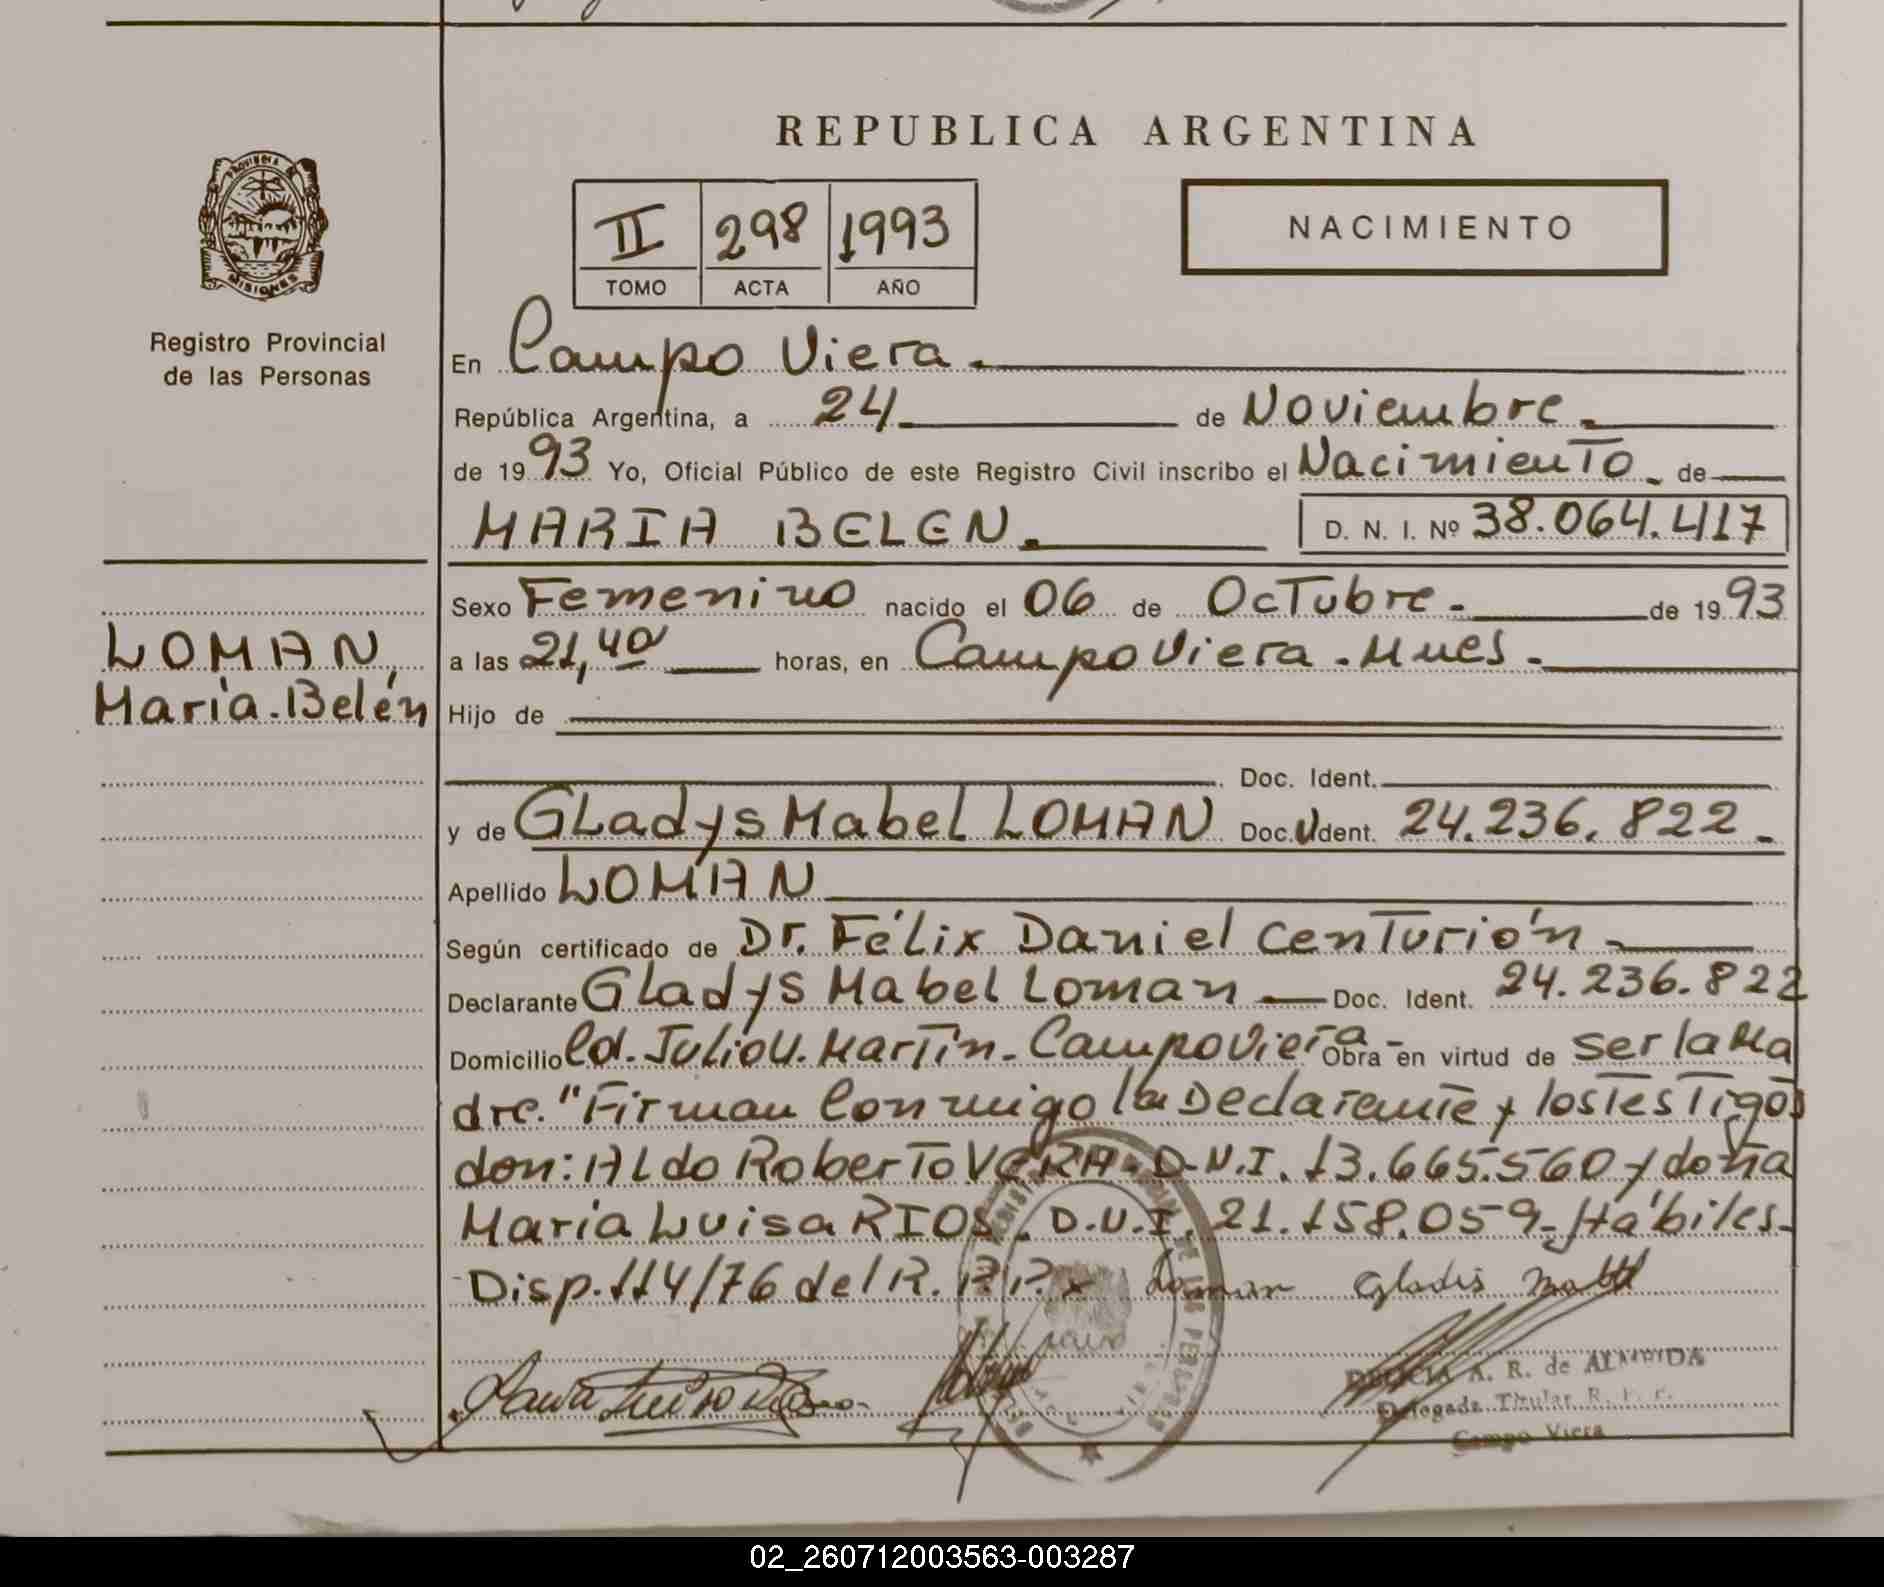 REPUBLICA ARGENTINA
PROVINCIA DE
MISIONES
Registro Provincial
de las Personas
II 298 1993
TOMO ACTA AÑO
NACIMIENTO
En Campo Viera.
República Argentina, a 24 de Noviembre.
de 1993 Yo, Oficial Público de este Registro Civil inscribo el Nacimiento. de
MARIA BELEN. D. N. I. Nº 38.064.417
Sexo Femenino nacido el 06 de Octubre. de 1993
LOMAN,
María.Belén
a las 21,40 horas, en Campo Viera. Mnes.
Hijo de
Doc. Ident.
y de Gladys Mabel LOMAN Doc. Ident. 24.236.822.
Apellido LOMAN
Según certificado de Dr. Félix Daniel Centurión
Declarante Gladys Mabel Loman Doc. Ident. 24.236.822
Domicilio Cd. Julio U. Martín. Campo Viera Obra en virtud de ser la Ma
dre." Firman Conmigo la Declarante y los Testigos
don: Aldo Roberto VERA. D.N.I. 13.665.560 y doña
María Luisa RIOS. D.N.I. 21.158.059. Hábiles.
Disp. 114/76 del R.P.P. x Loman Gladis Mabel
A. R. de ALMEIDA
Delegada Titular R. P. P.
Campo Viera
02_260712003563-003287